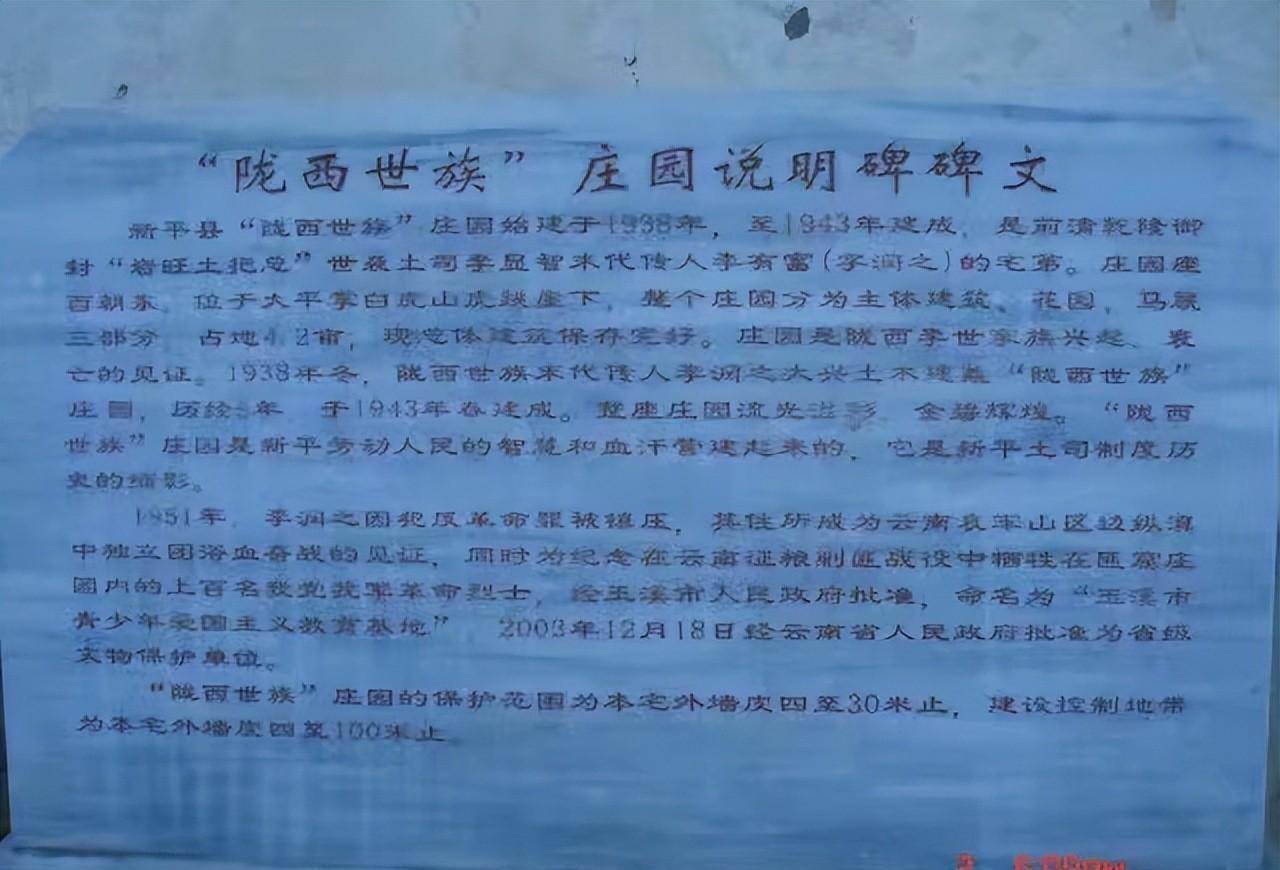 “陇西世族”庄园说明碑碑文
新平县“陇西世族”庄园始建于1938年，至1943年建成，是前清乾隆御
封“岩旺土把总”世袭土司李显智末代传人李有富(李润之)的宅第。庄园座
西朝东，位于太平掌白虎山虎踞座下，整个庄园分为主体建筑、花园，马厩
三部分，占地4.2亩，现总体建筑保存完好。庄园是陇西李世家族兴起、衰
亡的见证。1938年冬，陇西世族末代传人李润之大兴土木建盖“陇西世族”
庄园，历经5年，于1943年春建成。整座庄园流光溢彩，金碧辉煌。“陇西
世族”庄园是新平劳动人民的智慧和血汗营建起来的，它是新平土司制度历
史的缩影。
1951年，李润之因犯反革命罪被镇压，其住所成为云南哀牢山区边纵滇
中独立团浴血奋战的见证，同时为纪念在云南征粮剿匪战役中牺牲在匪窝庄
园内的上百名我党我军革命烈士，经玉溪市人民政府批准，命名为“玉溪市
青少年爱国主义教育基地” 2003年12月18日经云南省人民政府批准为省级
文物保护单位。
“陇西世族”庄园的保护范围为本宅外墙皮四至30米止，建设控制地带
为本宅外墙皮四至100米止